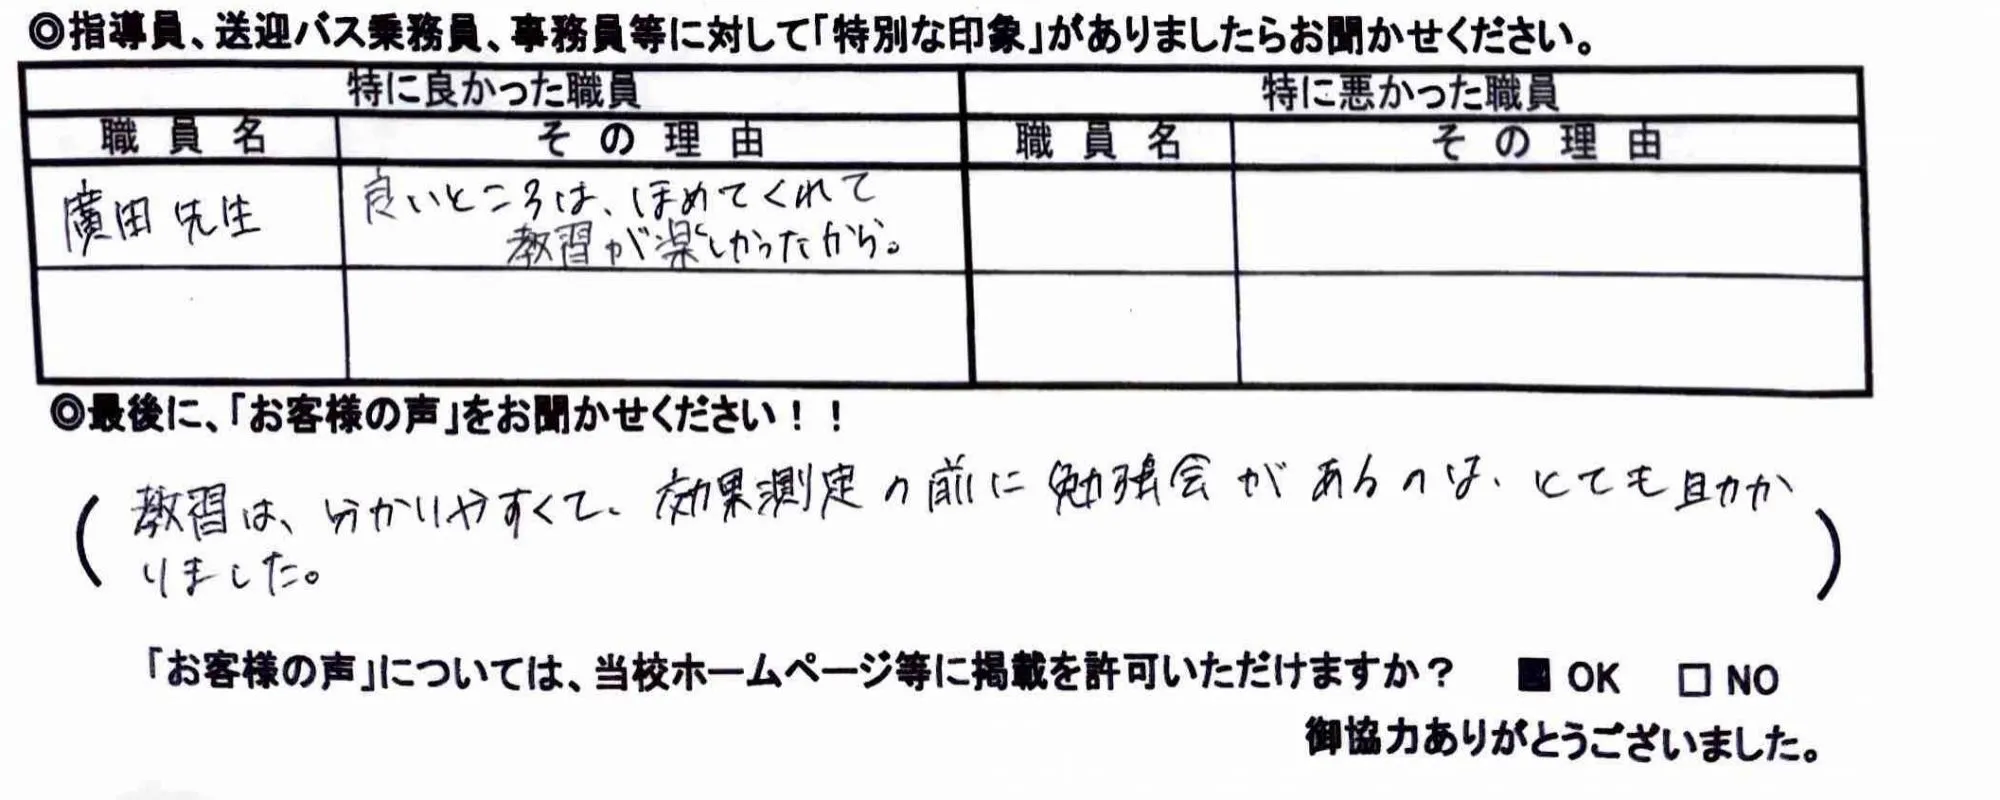 ◎指導員、送迎バス乗務員、事務員等に対して「特別な印象」がありましたらお聞かせください。
特に良かった職員 特に悪かった職員
職員名 その理由 職員名 その理由
廣田先生 良いところは、ほめてくれて
教習が楽しかったから。
◎最後に、「お客様の声」をお聞かせください！！
(教習は、分かりやすくて、効果測定の前に勉強会があるのは、とても助か
りました。)
「お客様の声」については、当校ホームページ等に掲載を許可いただけますか？ ■ OK □ NO
御協力ありがとうございました。